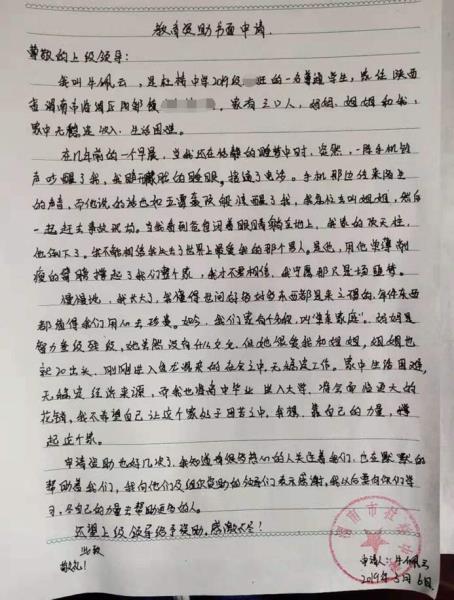 教育资助书面申请
尊敬的上级领导：
我叫牛佩云，是杜桥中学2019级 班的一名普通学生，家住陕西
省渭南市临渭区 ，家有三口人，妈妈、姐姐和我，
家中无稳定收入，生活困难。
在几年前的一个早晨，当我还在恬静的睡梦中时，突然，一阵手机铃
声吵醒了我，我睁开朦胧的睡眼，接通了电话。手机那边传来陌生
的声音，而他说的话也如五雷轰顶般惊醒了我，我急忙去叫姐姐，然后
一起赶去事故现场。当我看到爸爸闭着眼睛躺在地上，我家的顶天柱，
他倒下了。我不敢相信我失去了世界上最爱我的那个男人。是他，用他单薄削
瘦的臂膀撑起了我们整个家，我才不要相信，我宁愿那只是场噩梦。
慢慢地，我长大了，我懂得世间好多好多东西都是来之不易的，每件东西
都值得我们用心去珍惜。如今，我们家有个名称，叫“单亲家庭”。妈妈是
智力叁级残疾，她虽然没有什么文化，但她很爱我和姐姐，姐姐也
起 20出头，刚刚进入鱼龙混杂的社会之中，无稳定工作。家中生活困难，
无稳定经济来源，而我也将高中毕业，进入大学，将会面临更大的
花销，我不希望自己让这个家处于困苦之中，我想，靠自己的力量，撑
起这个家。
申请资助也好几次了，我知道有很多热心的人关注着我们，也在默默的
帮助着我们，我向他们及组织资助的领导们表示感谢，我以后要向你们学
习，尽自己的力量去帮助更多的人。
还望上级领导给予资助，感激不尽！
此致
敬礼！
申请人：牛佩云
2019年5月6日
渭南市杜桥中学